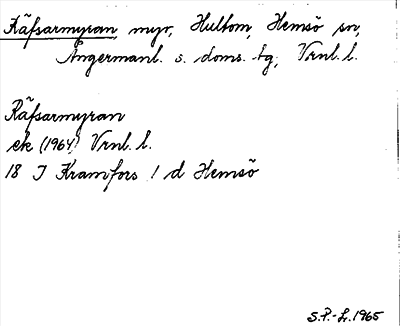 Räfsarmyran myr, Hultom, Hemsö sn,
Ångermanl. s. doms. tg, Vrnl. l.
Räfsarmyran
ek (1964) Vrnl. l.
18 I Kramfors 1 d Hemsö
S.P.-L. 1965